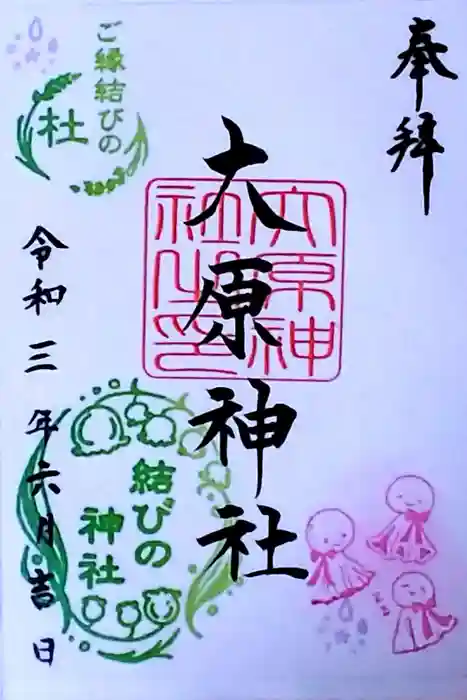 奉拝
大原神社
大原神社之印
ご縁結びの
杜
令和三年六月吉日
結びの
神社